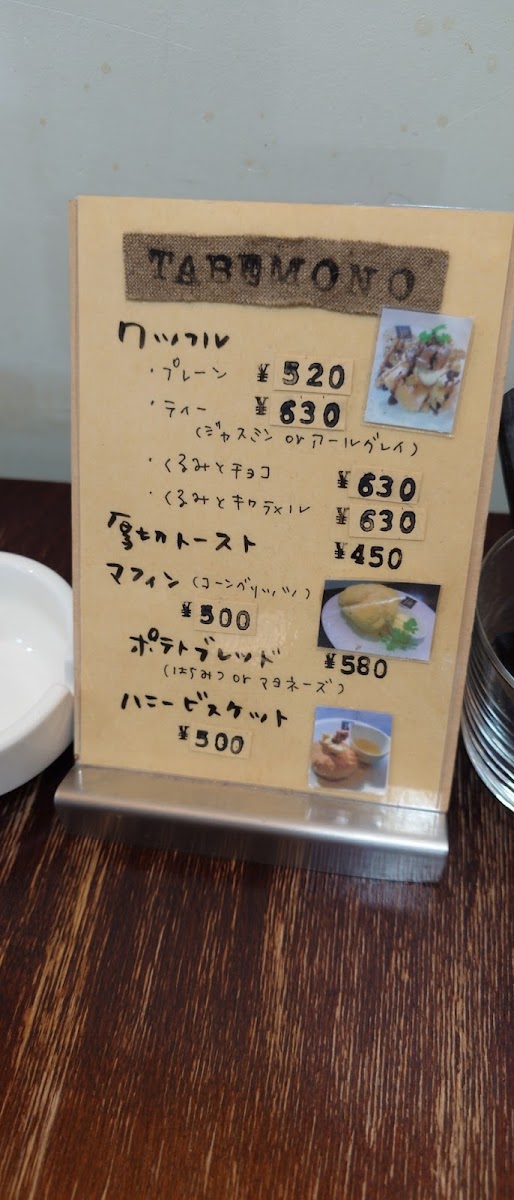 TABEMONO
ワッフル
・プレーン ¥520
・ティー ¥630
(ジャスミン or アールグレイ)
・くるみとチョコ ¥630
・くるみとキャラメル ¥630
厚切トースト ¥450
マフィン (コーングリッツ)
¥500
ポテトブレッド ¥580
(はちみつ or マヨネーズ)
ハニービスケット
¥500